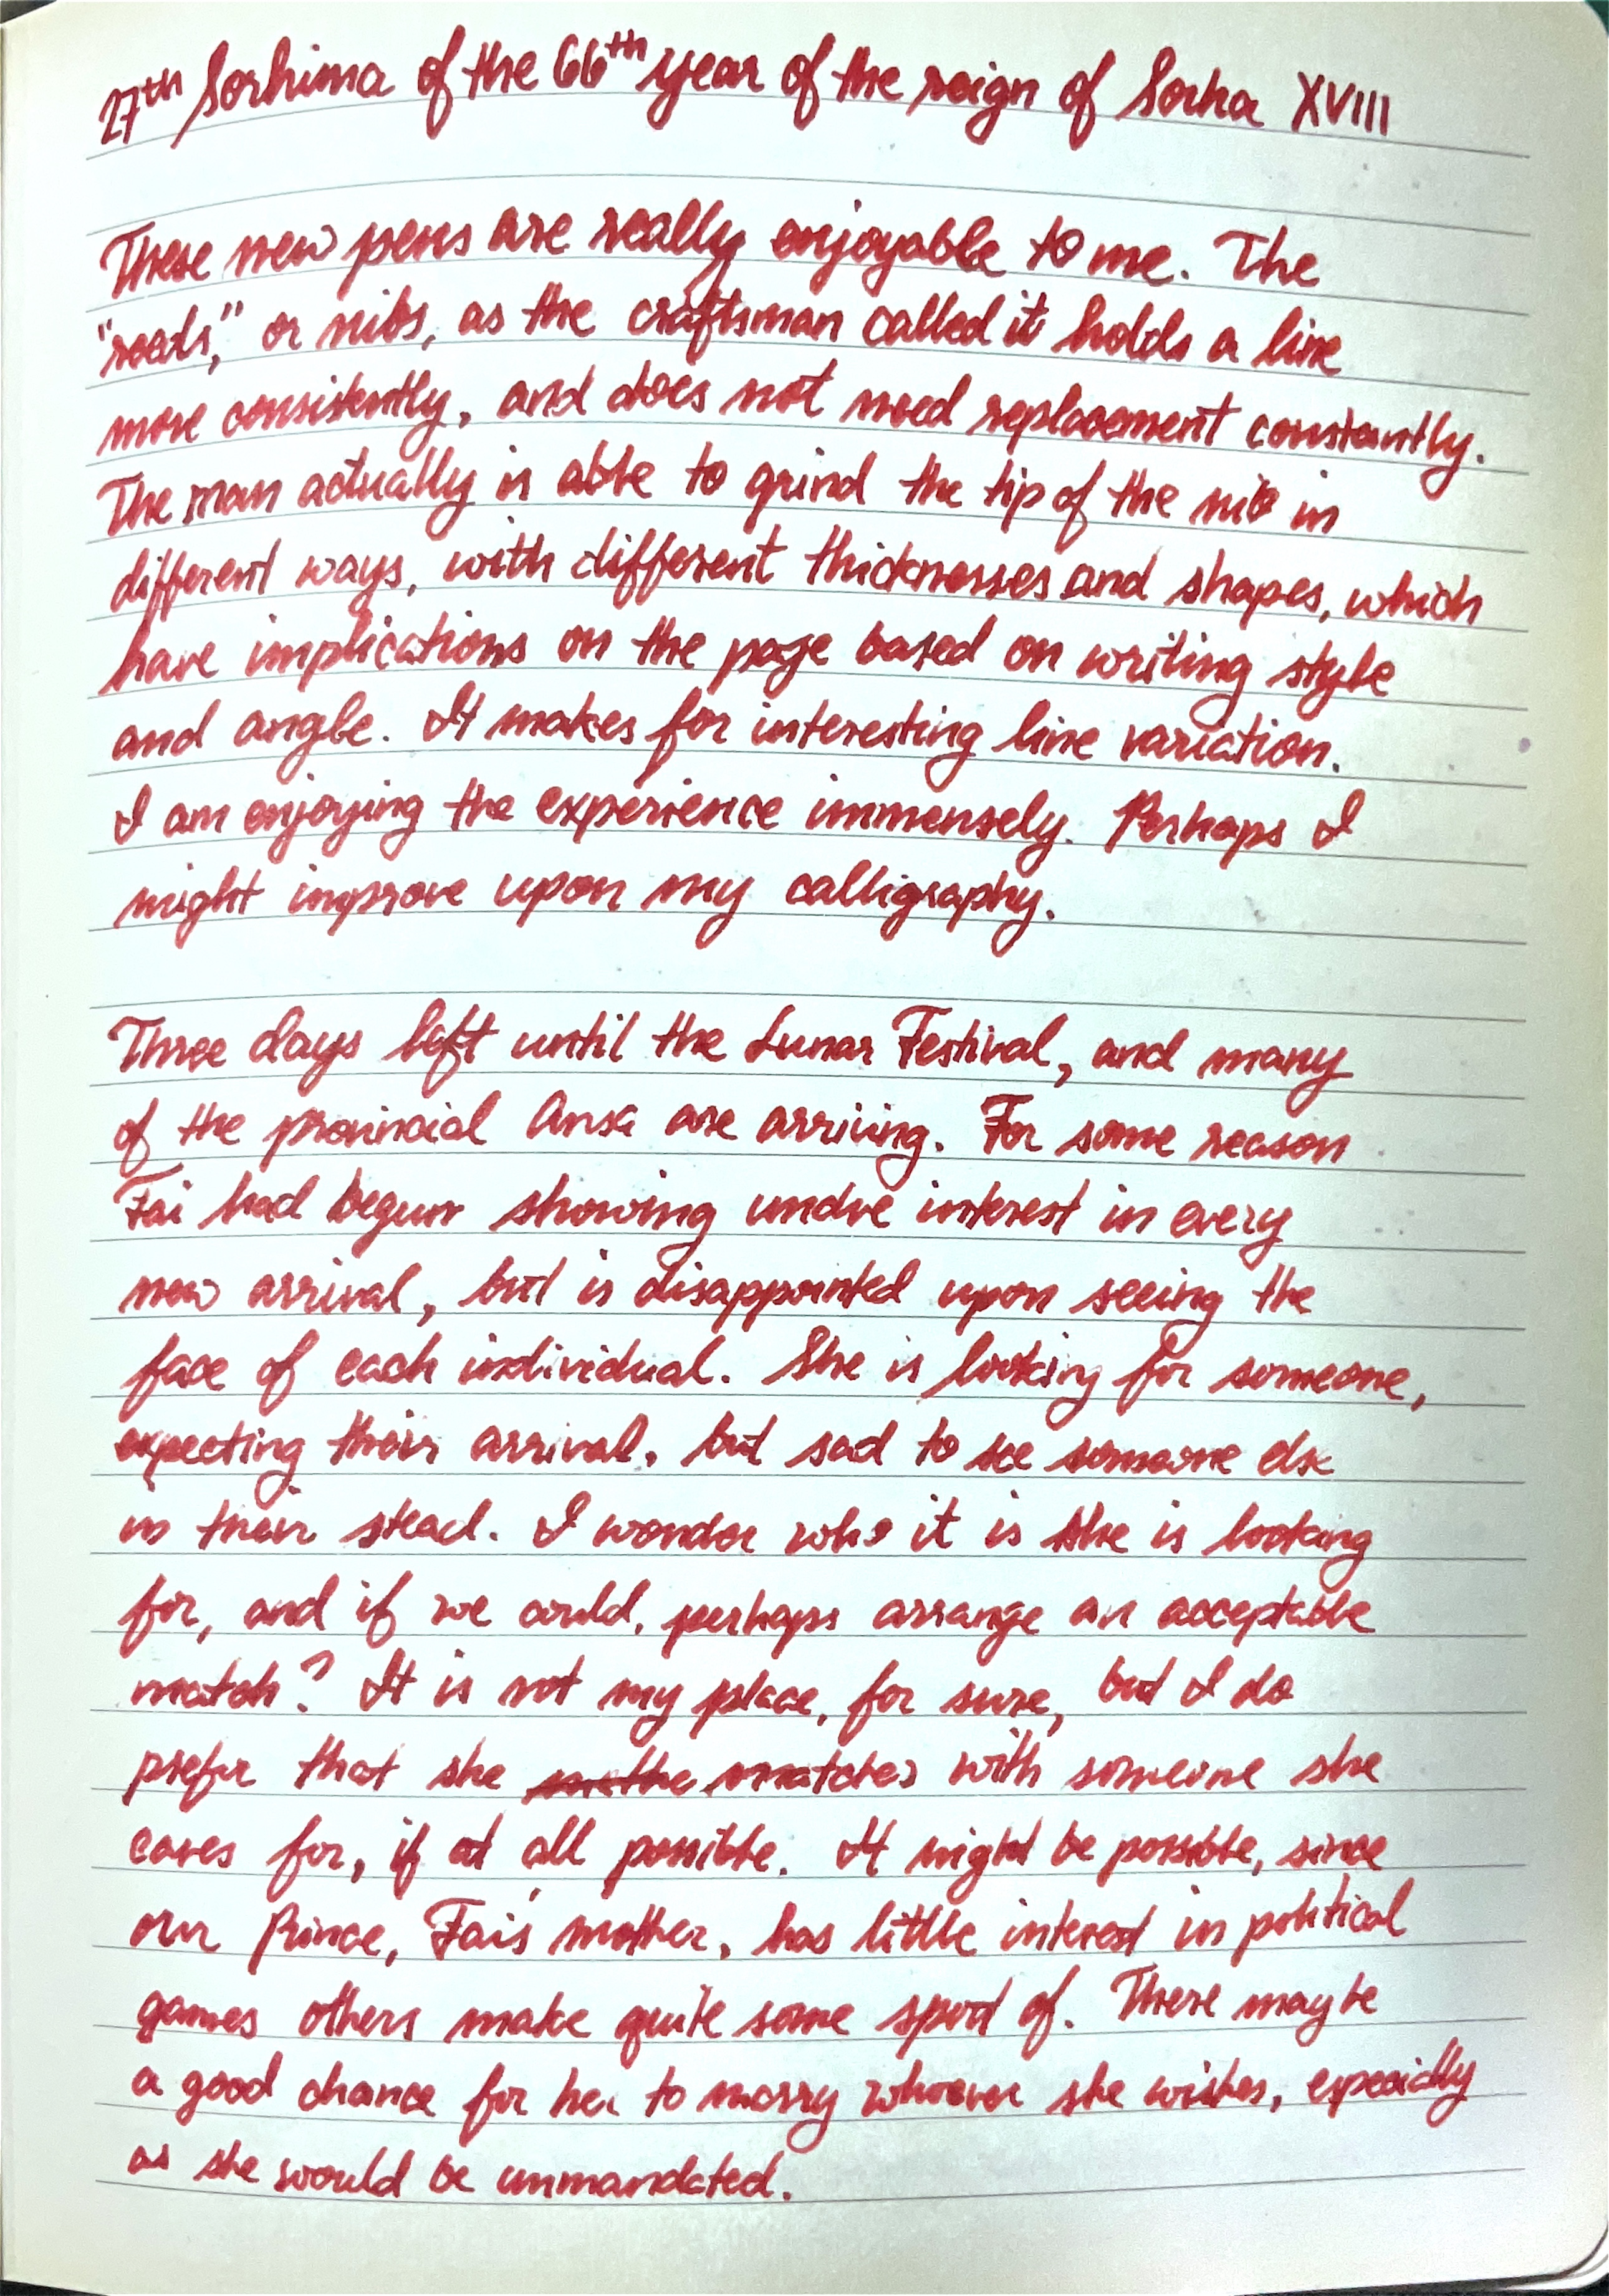 27th Sorhima of the 66th year of the reign of Sorha XVIII
These new pens are really enjoyable to me. The
"reeds," or nibs, as the craftsman called it holds a line
more consistently, and does not need replacement constantly.
The man actually is able to grind the tip of the nib in
different ways, with different thicknesses and shapes, which
have implications on the page based on writing style
and angle. It makes for interesting line variation.
I am enjoying the experience immensely. Perhaps I
might improve upon my calligraphy.
Three days left until the Lunar Festival, and many
of the provincial Ansa are arriving. For some reason
Fai had begun showing undue interest in every
new arrival, but is disappointed upon seeing the
face of each individual. She is looking for someone,
expecting their arrival, but sad to see someone else
in their stead. I wonder who it is she is looking
for, and if we could, perhaps arrange an acceptable
match? It is not my place, for sure, but I do
prefer that she matches with someone she
cares for, if at all possible. It might be possible, since
our Prince, Fai's mother, has little interest in political
games others make quite some sport of. There may be
a good chance for her to marry whoever she wishes, especially
as she would be unmandated.